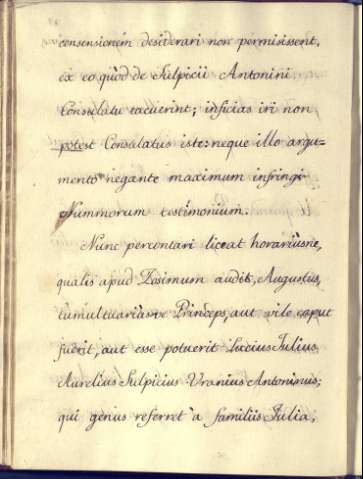 consensionem desiderari non permisissent,
ex eo quòd de Sulpicii Antonini
Consulatu tacuerint; inficias iri non
potest Consulatus iste: neque illo argu=
mento negante maximum infringi
Nummorum testimonium.
Nunc percontari liceat horariusne,
qualis apud Zosimum audit, Augustus,
tumultuariusve Princeps, aut vile caput
fuerit, aut esse potuerit Lucius Julius
Aurelius Sulpicius Uranius Antoninus;
qui genus referret à familiis Julia,